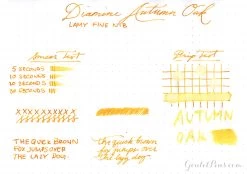 Diamine Autumn Oak
LAMY FINE NIB
Smear Test
Drip Test
5 SECONDS
10 SECONDS
20 SECONDS
30 SECONDS
XXXXXXXXXX
AUTUMN
OAK
THE QUICK BROWN
FOX JUMPS OVER
THE LAZY DOG.
the quick brown
fox jumps over
the lazy dog